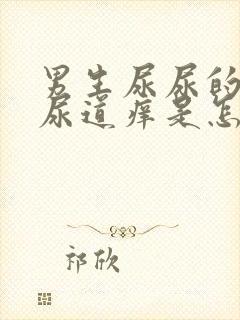 男生尿尿的
尿道痒是怎
祁欣